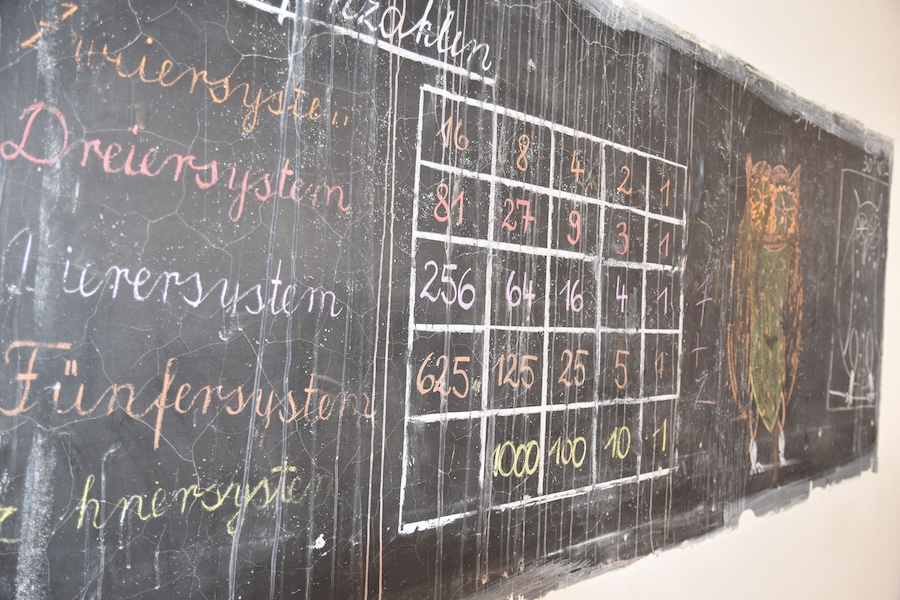 Zweiersystem 16 8 4 2 1
Dreiersystem 81 27 9 3 1
Vierersystem 256 64 16 4 1
Fünfersystem 625 125 25 5 1
Zehnersystem 1000 100 10 1